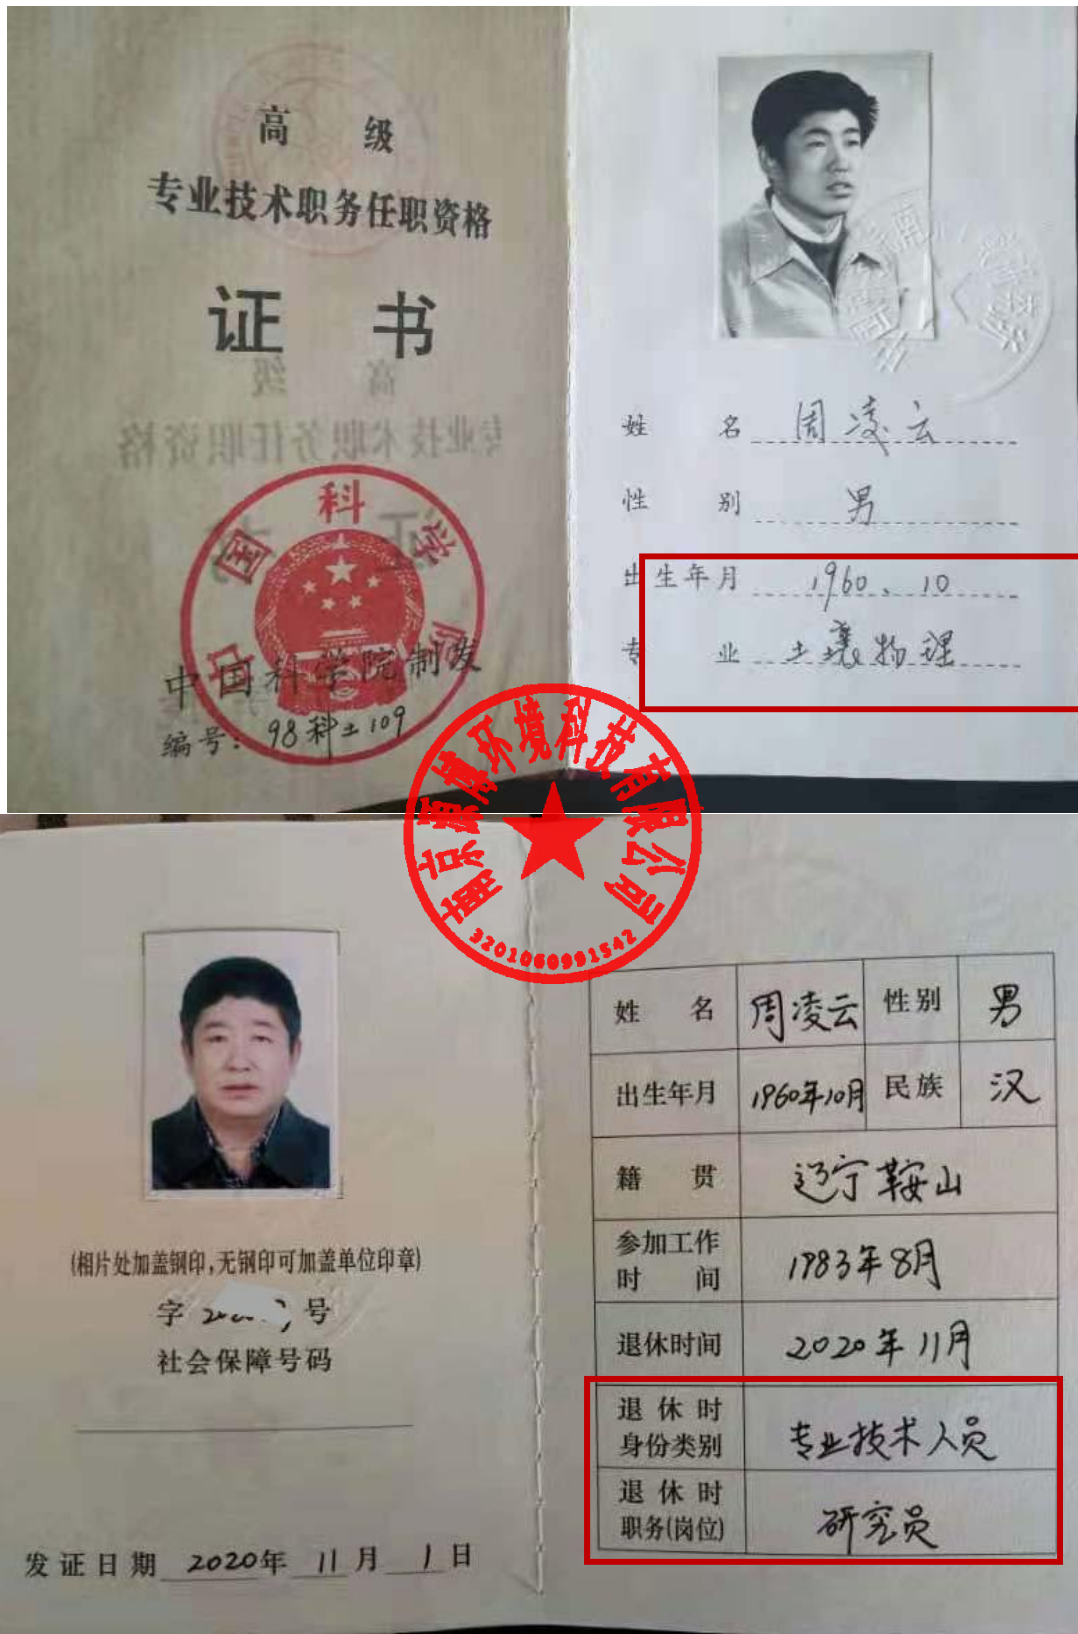 高 级
专业技术职务任职资格
证 书
中国科学院
中国科学院制发
编号：98科土109
姓 名 周凌云
性 别 男
出生年月 1960、10
专 业 土壤物理
南京源博环境科技有限公司
3201060991542
(相片处加盖钢印，无钢印可加盖单位印章)
字 号
社会保障号码
发证日期 2020年 11月 1日
姓 名 周凌云 性别 男
出生年月 1960年10月 民族 汉
籍 贯 辽宁鞍山
参加工作
时 间 1983年8月
退休时间 2020年11月
退 休 时
身份类别 专业技术人员
退 休 时
职务(岗位) 研究员